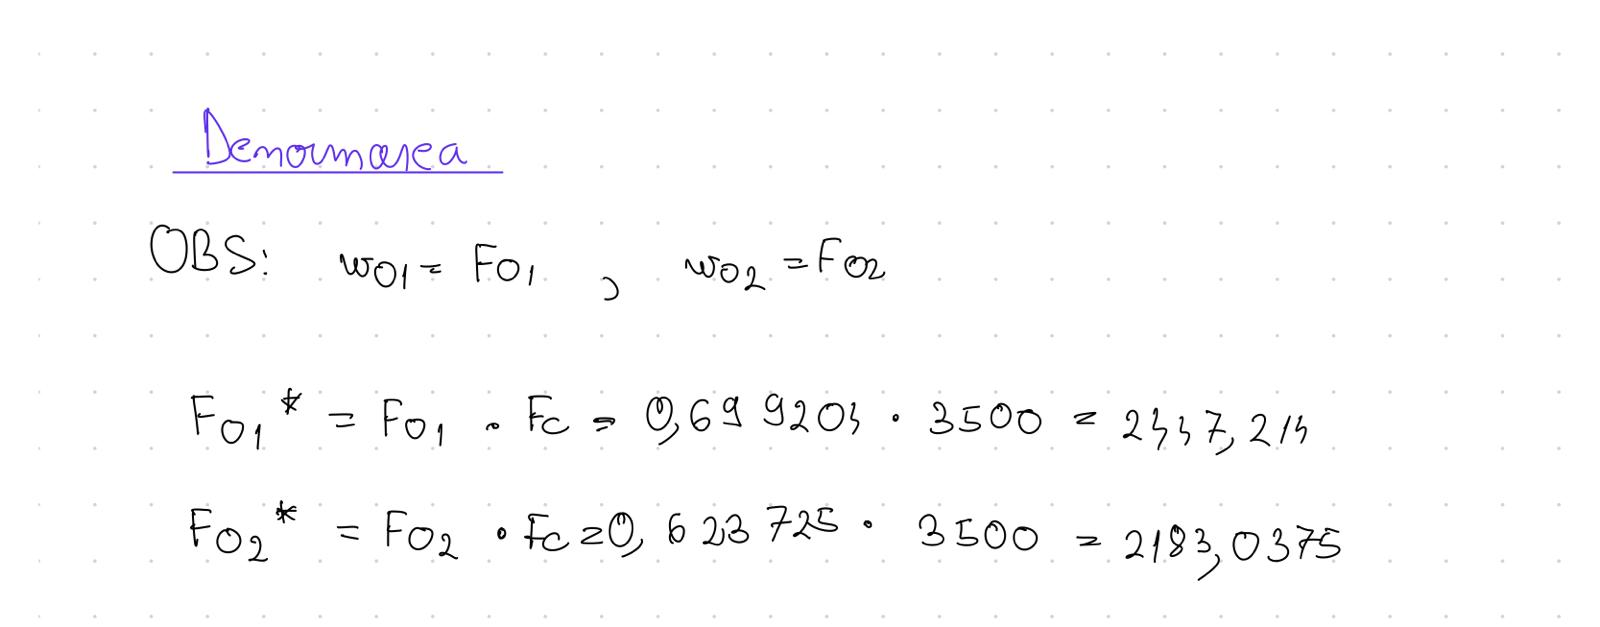 Denormarea
OBS: w01 = F01 , w02 = F02
F01* = F01 · Fc = 0,699204 · 3500 = 2447,214
F02* = F02 · Fc = 0,623725 · 3500 = 2183,0375